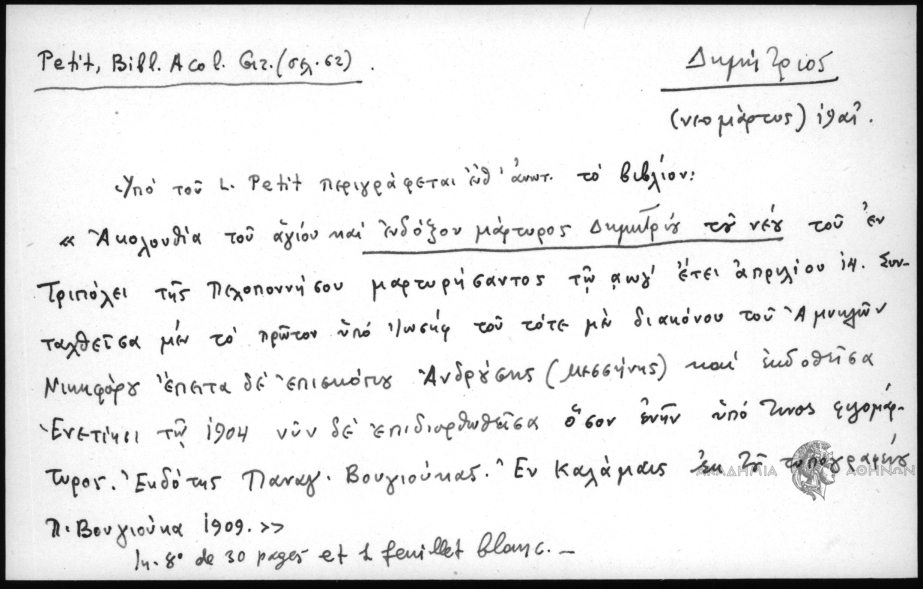 Petit, Bibl. Acol. Gr. (σελ. 62).
Δημήτριος
(νεομάρτυς)
Ὑπό τοῦ L. Petit περιγράφεται τό βιβλίον:
« Ἀκολουθία τοῦ ἁγίου καί ἐνδόξου μάρτυρος Δημητρίου τοῦ νέου τοῦ ἐν
Τριπόλει τῆς Πελοποννήσου μαρτυρήσαντος τῷ αωγ' ἔτει ἀπριλίου 14. Συν-
ταχθεῖσα μέν τό πρῶτον ὑπό Ἰωσήφ τοῦ τότε μέν διακόνου τοῦ Ἀμυκλῶν
Νικηφόρου ἔπειτα δέ ἐπισκόπου Ἀνδρούσης (Μεσσήνης) καί ἐκδοθεῖσα
Ἐνετίησι τῷ 1904 νῦν δέ ἐπιδιορθωθεῖσα ὅσον ἐνῆν ὑπό τινος φιλομάρ-
τυρος. Ἐκδότης Παναγ. Βουγιούκας. Ἐν Καλάμαις ἐκ τοῦ τυπογραφείου
Π. Βουγιούκα 1909. >>
In. 8° de 30 pages et 1 feuillet blanc. —
ΑΚΑΔΗΜΙΑ ΑΘΗΝΩΝ